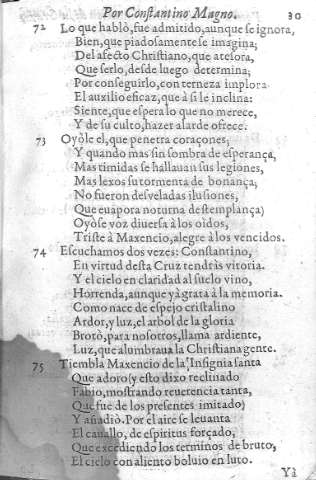 Por Constantino Magno. 30
72 Lo que hablò, fue admitido, aunque se ignora,
Bien, que piadosamente se imagina;
Del afecto Christiano, que atesora,
Que serlo, desde luego determina;
Por conseguirlo, con terneza implora
El auxilio eficaz, que à si le inclina:
Siente, que espera lo que no merece,
Y de su culto, hazer alarde ofrece.
73 Oyòle el, que penetra coraçones,
Y quando mas sin sombra de esperança,
Mas timidas se hallauan sus legiones,
Mas lexos su tormenta de bonança,
No fueron desveladas ilusiones,
Que euapora noturna destemplança)
Oyòse voz diuersa à los oìdos,
Triste à Maxencio, alegre à los vencidos.
74 Escuchamos dos vezes: Constantino,
En virtud desta Cruz tendràs vitoria.
Y el cielo en claridad al suelo vino,
Horrenda, aunque yà grata à la memoria.
Como nace de espejo cristalino
Ardor, y luz, el arbol de la gloria
Brotò, para nosotros, llama ardiente,
Luz, que alumbraua la Christiana gente.
75 Tiembla Maxencio de la Insignia santa
Que adoro (y esto dixo reclinado
Fabio, mostrando reuerencia tanta,
Que fue de los presentes imitado)
Y añadiò. Por el aire se leuanta
El cauallo, de espiritus forçado,
Que excediendo los terminos de bruto,
El cielo con aliento boluio en luto.
Yà